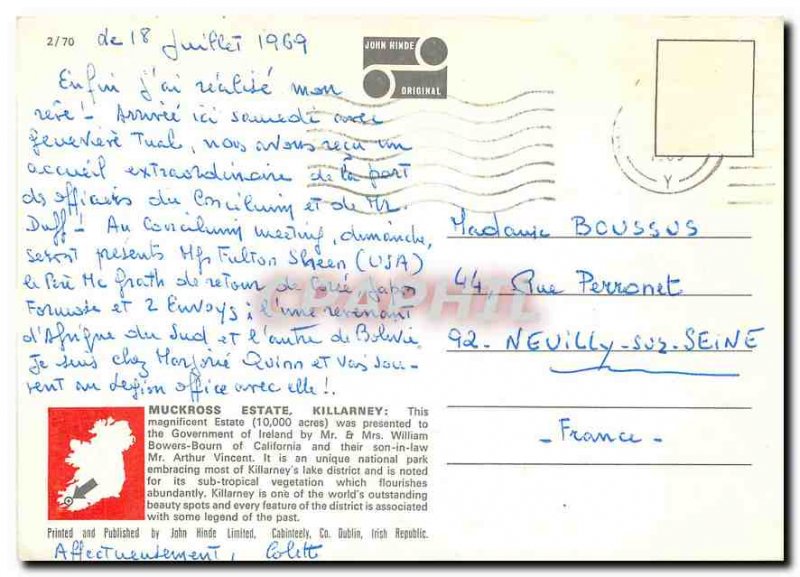 2/70 de 18 Juillet 1969
JOHN HINDE
ORIGINAL
Enfin j'ai réalisé mon
rêve! Arrivée ici samedi avec
Geneviève Tual, nous avons reçu un
accueil extraordinaire de la part
des officiers du Concilium et de Mr.
Duff! Au Concilium meeting, dimanche,
seront présents Mgr Fulton Sheen (USA)
le Père Mc Grath de retour de Corée, Japon
Formose et 2 Envoys; l'une revenant
d'Afrique du Sud et l'autre de Bolivie.
Je suis chez Marjorie Quinn et vais sou-
vent au Legion office avec elle!.
Madame BOUSSUS
44, Rue Perronet
92- NEUILLY-SUR-SEINE
- France -
CPAPHIL
MUCKROSS ESTATE, KILLARNEY: This
magnificent Estate (10,000 acres) was presented to
the Government of Ireland by Mr. & Mrs. William
Bowers-Bourn of California and their son-in-law
Mr. Arthur Vincent. It is an unique national park
embracing most of Killarney's lake district and is noted
for its sub-tropical vegetation which flourishes
abundantly. Killarney is one of the world's outstanding
beauty spots and every feature of the district is associated
with some legend of the past.
Printed and Published by John Hinde Limited, Cabinteely, Co. Dublin, Irish Republic.
Affectueusement, Colette